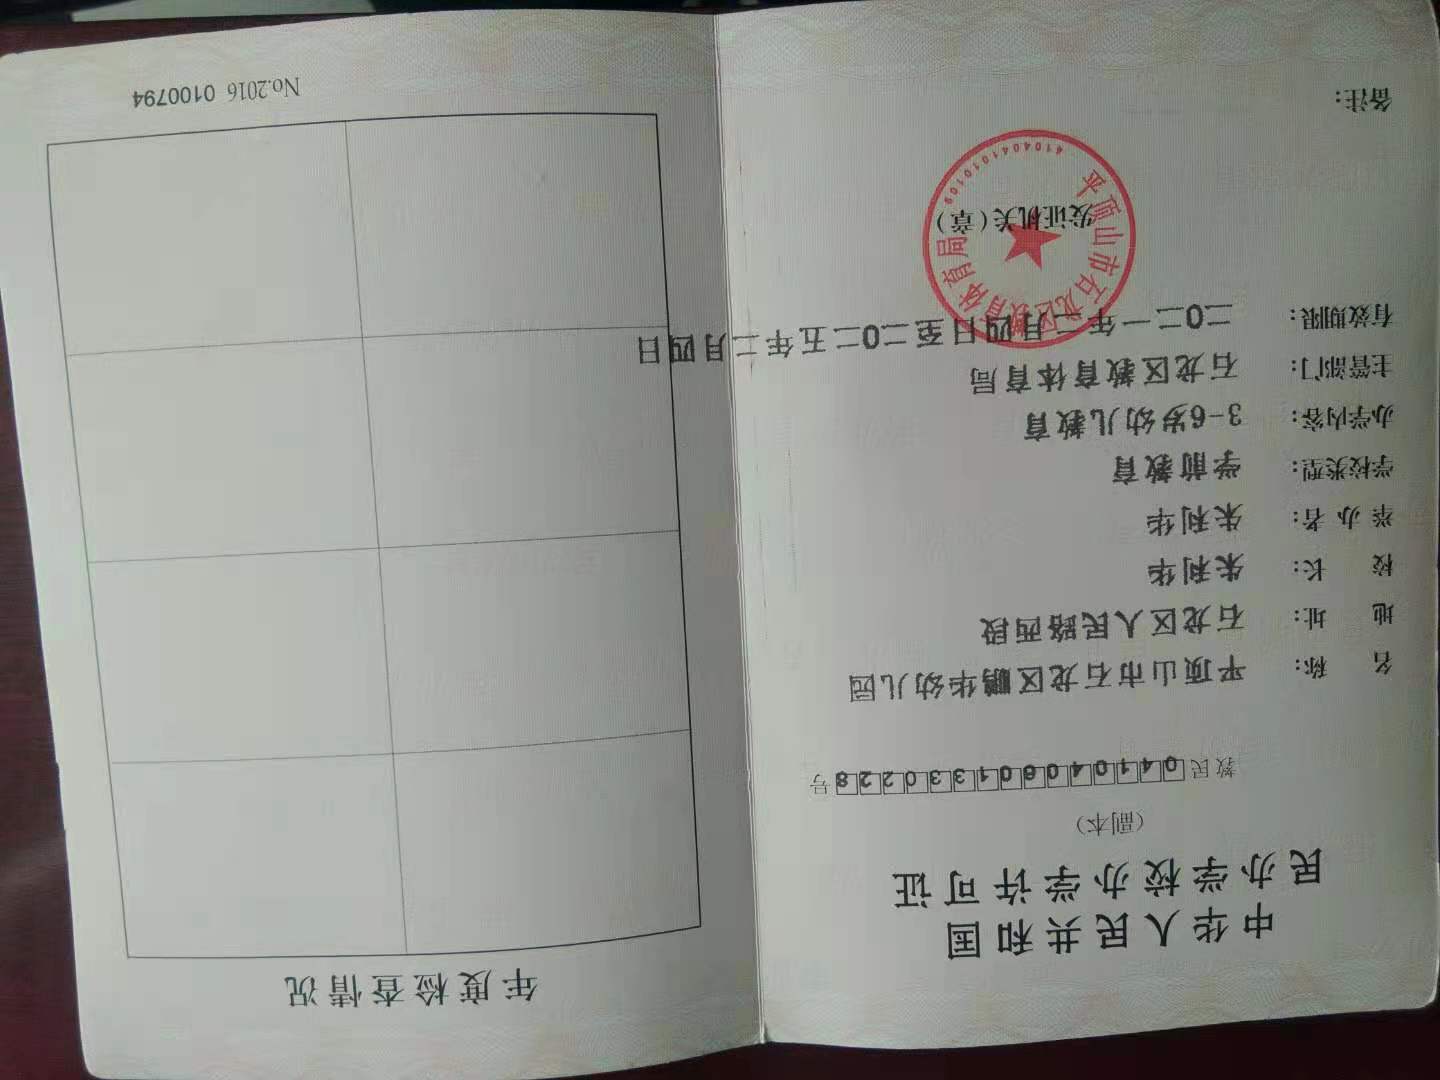 中华人民共和国
民办学校办学许可证
（副本）
教民041040601330228号
名 称： 平顶山市石龙区鹏华幼儿园
地 址： 石龙区人民路西段
校 长： 朱利华
举 办 者： 朱利华
学校类型： 学前教育
办学内容： 3-6岁幼儿教育
主管部门： 石龙区教育体育局
有效期限： 二0二一年二月四日至二0二五年二月四日
发证机关（章）
平顶山市石龙区教育体育局
4104041010109
备注：
年度检查情况
No.2016 0100794